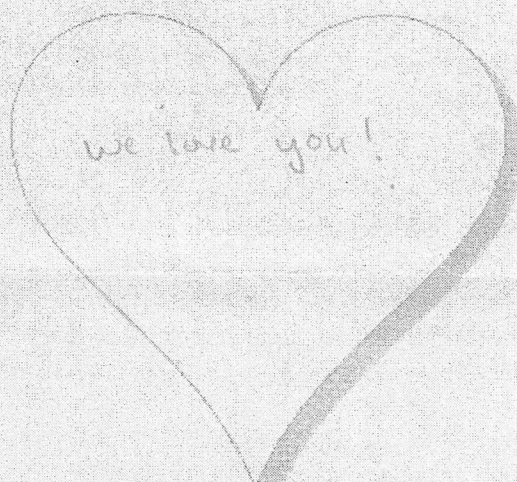 we love you!